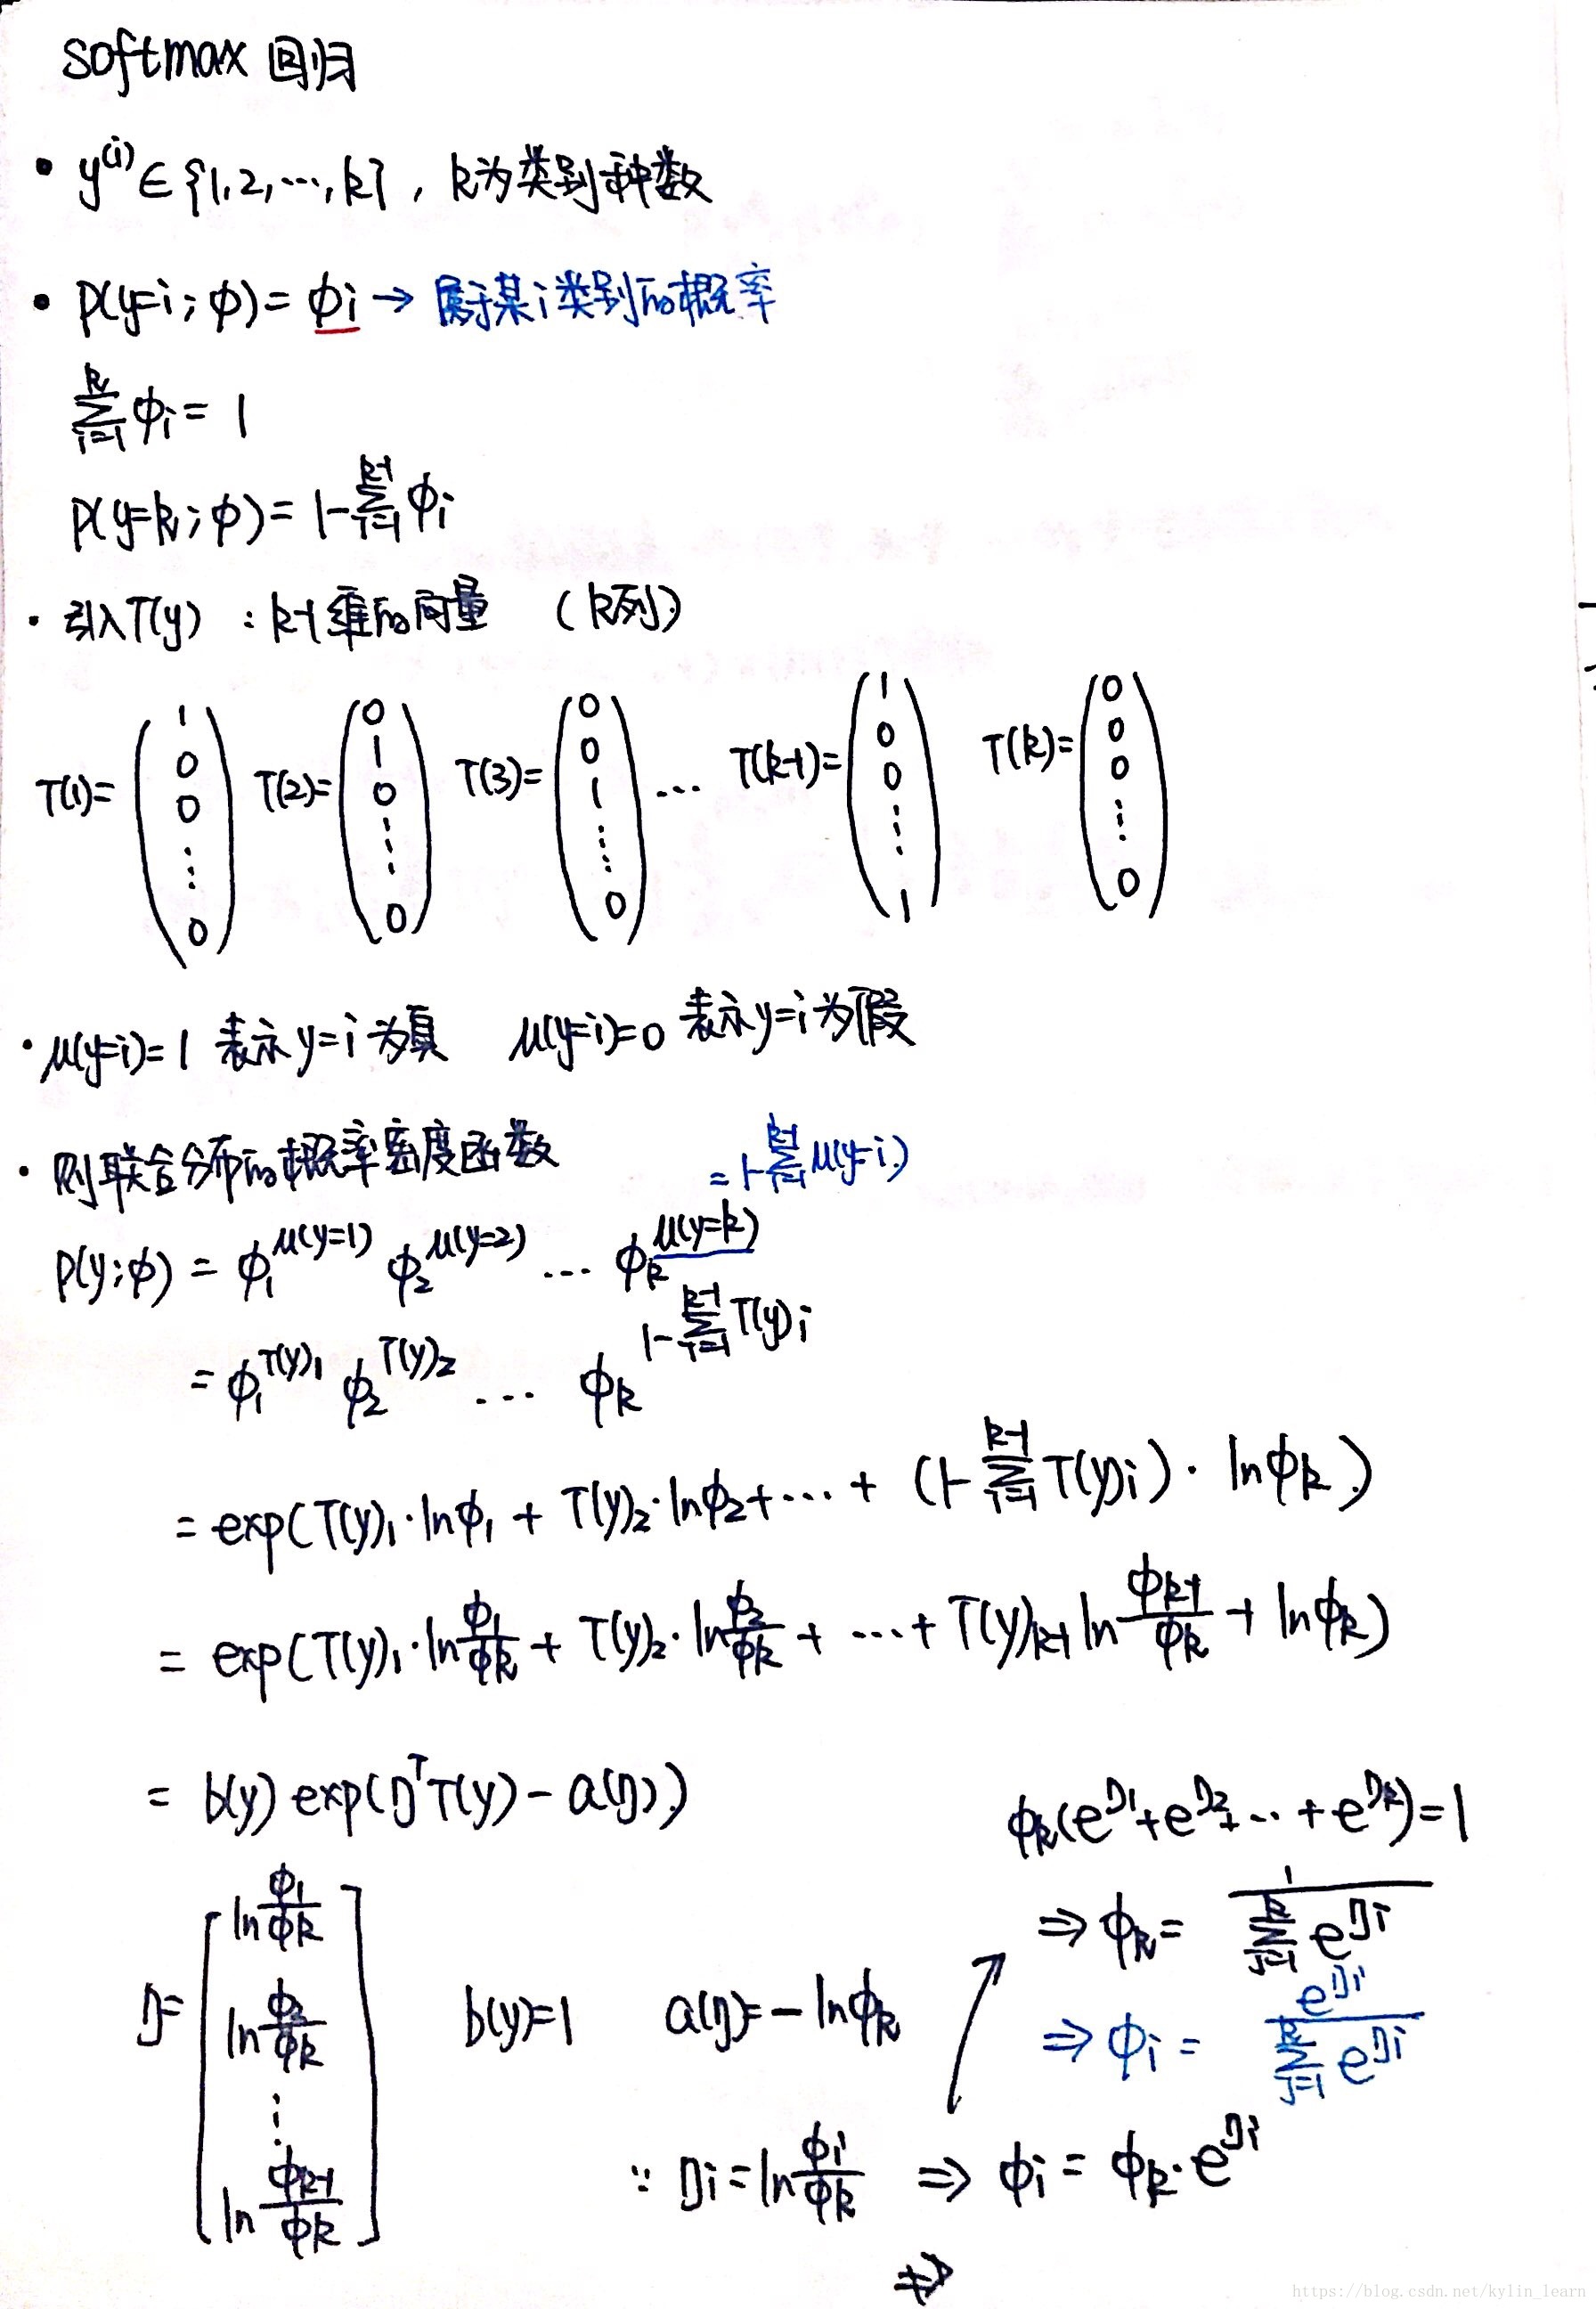 softmax 回归
• y⁽ⁱ⁾ ∈ {1, 2, ⋯, k} , k为类别种数
• p(y=i ; φ) = φi → 属于某i类别的概率
∑_{i=1}^{k} φi = 1
p(y=k ; φ) = 1-∑_{i=1}^{k-1} φi
• 引入T(y) : k-1维的向量 (k列)
T(1)= (1 0 0 ⋮ 0) T(2)= (0 1 0 ⋮ 0) T(3)= (0 0 1 ⋮ 0) ⋯ T(k-1)= (1 0 0 ⋮ 1) T(k)= (0 0 0 ⋮ 0)
• μ(y=i)=1 表示 y=i 为真 μ(y=i)=0 表示 y=i 为假
• 则联合分布的概率密度函数
= 1-∑_{i=1}^{k-1} μ(y=i)
P(y;φ) = φ₁^{μ(y=1)} φ₂^{μ(y=2)} ⋯ φk^{μ(y=k)}
= φ₁^{T(y)₁} φ₂^{T(y)₂} ⋯ φk^{1-∑_{i=1}^{k-1} T(y)i}
= exp(T(y)₁·lnφ₁ + T(y)₂·lnφ₂ + ⋯ + (1-∑_{i=1}^{k-1} T(y)i)·lnφk)
= exp(T(y)₁·ln φ₁/φk + T(y)₂·ln φ₂/φk + ⋯ + T(y)k-1 ln φk-1/φk + lnφk)
= b(y) exp(ηᵀT(y) - a(η))
φk(e^{η1} + e^{η2} + ⋯ + e^{ηk}) = 1
⇒ φk = 1 / ∑_{j=1}^{k} e^{ηi}
η= [ln φ₁/φk ln φ₂/φk ⋮ ln φk-1/φk] b(y)=1 a(η)= - lnφk
⇒ φi = e^{ηi} / ∑_{j=1}^{k} e^{ηi}
∵ ηi = ln φi/φk ⇒ φi = φk·e^{ηi}
⇒
https://blog.csdn.net/kylin_learn